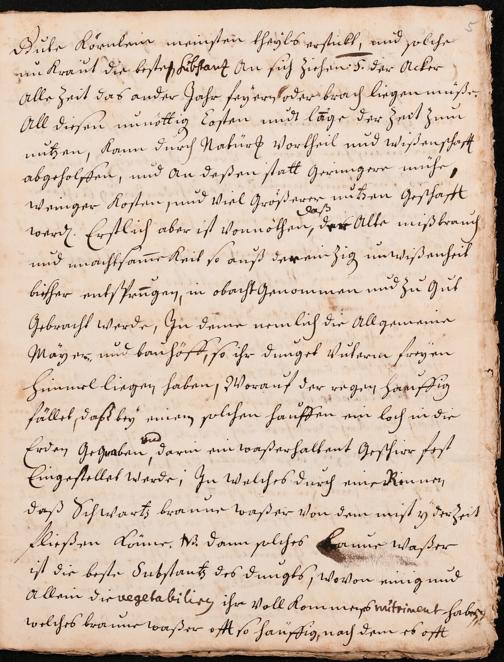 5
Gute Körnlein meinsten theyls erstickt, und solche
un Kraut die beste Substantz An sich Ziehen der Acker
Alle Zeit das ander Jahr feyern oder brach liegen müsse.
All diesen unnöttig Costen und der Zeit zum
nutzen, kann durch Natürl Vortheil und wißenschafft
abgeholffen, und An deßen statt Geringere mühe,
weniger Kosten, und viel Größerer nutzen Geschafft
werd. Erstlich aber ist vonnöthen, daß der Alte mißbrauch
und unachtsamkeit so auß der einzig unwißenheit
bißher entsprungen, in obacht Genommen und zu Gut
Gebracht werde, In deme nemlich die Allgemeine
Mayer und bauhöff, so ihr dunget unterm freyen
himmel liegen haben, Worauf der regen hauffig
fället, daß bey einem solchen hauffen ein loch in die
Erden Gegraben, und darin ein waßerhaltent Geschirr fest
Eingestellet werde, In welches durch eine Rinnen
daß Schwartz braune waßer von dem mist derzeit
fließen Könne. NB. dann solches braune waßer
ist die beste Substantz des dungets, wovon einig und
Allein die vegetabilien ihr vollkommens nutriment haben,
welches braune waßer offt so häuffig, nach dem es offt